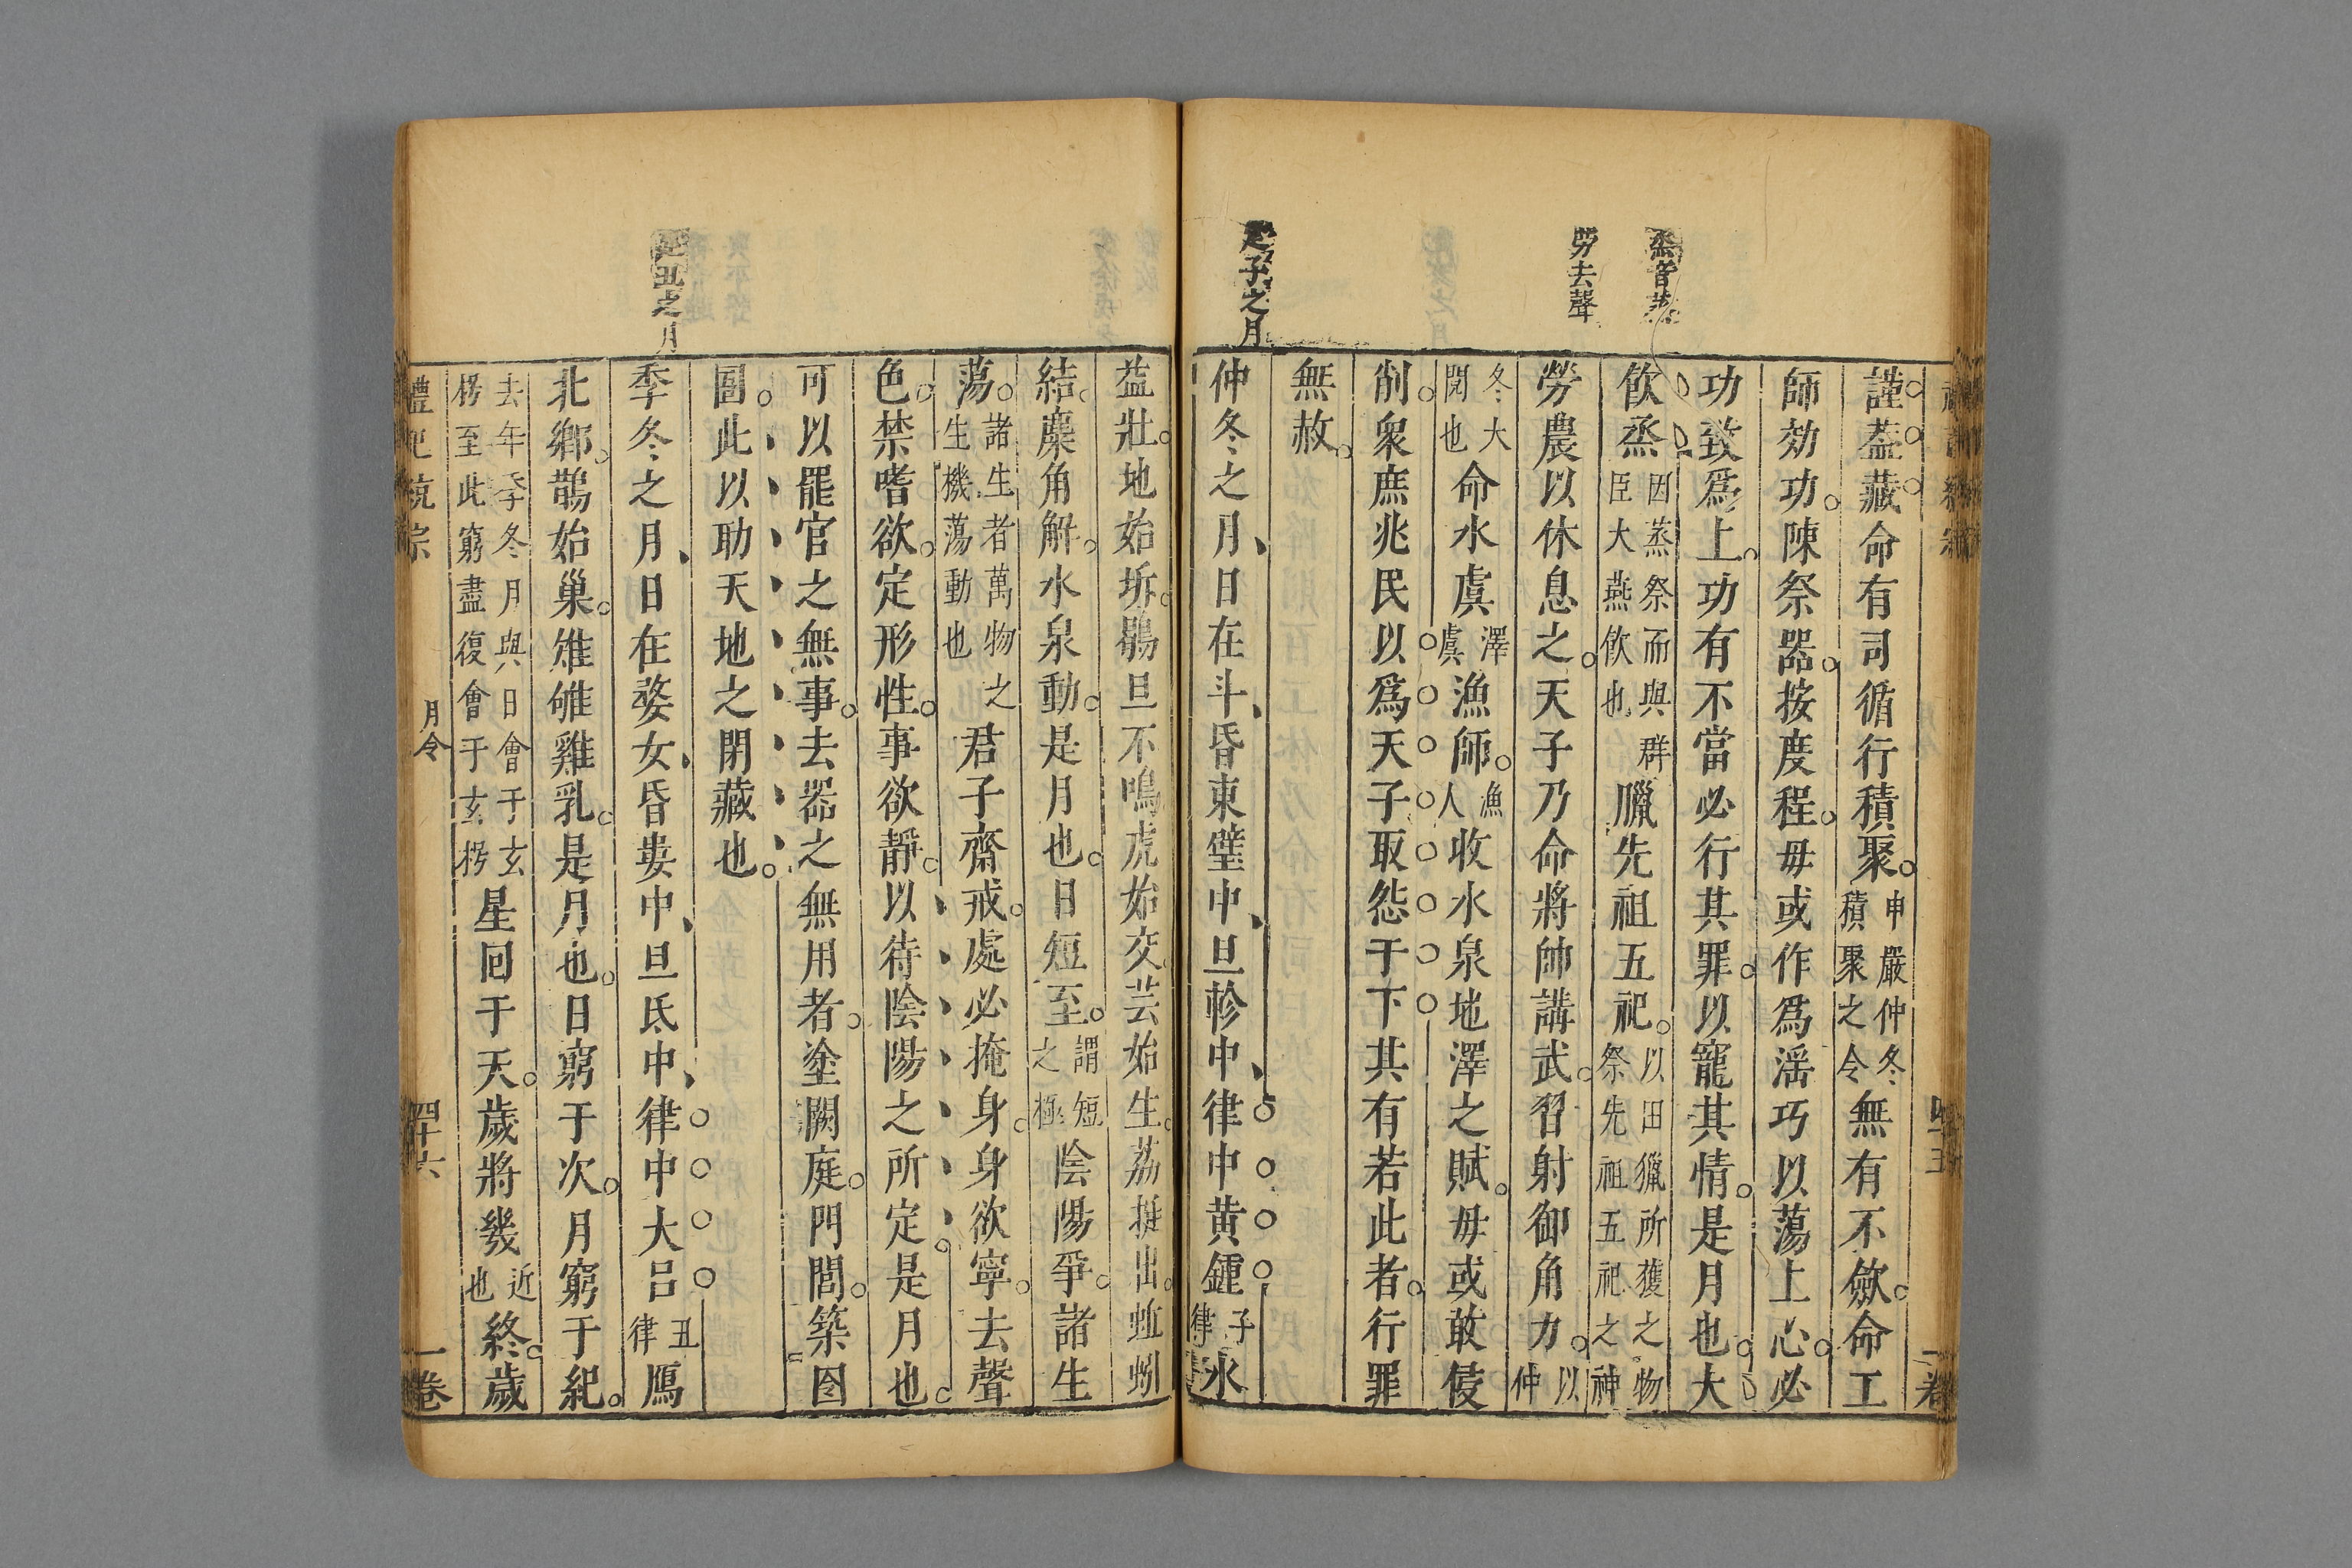 烝音蒸
勞去聲
建子之月
謹蓋藏命有司循行積聚。申嚴仲冬積聚之令無有不斂。命工
師効功。陳祭器。按度程。毋或作爲滛巧以蕩上心。必
功致爲上。功有不當必行其罪。以窮其情。是月也。大
飲烝因蒸祭而與群臣大燕飲也臘先祖五祀。以田獵所獲之物祭先祖五祀之神
勞農以休息之。天子乃命將帥講武。習射御角力。以仲
冬大閱也命水虞澤虞漁師。漁人收水泉地澤之賦。毋或敢侵
削。衆庶兆民以爲天子取怨于下其有若此者。行罪
無赦。
仲冬之月、日在斗、昏東壁中、旦軫中、律中黃鍾子律氷
益壯。地始坼。鶡旦不鳴虎始交。芸始生。荔挺出。蚯蚓
結。麋角解。水泉動。是月也。日短至。謂短之極陰陽爭。諸生
蕩。諸生者萬物之生機蕩動也君子齋戒。處必掩身。身欲寧。去聲
色。禁嗜欲。定形性。事欲靜。以待陰陽之所定。是月也。
可以罷官之無事。去器之無用者。塗闕庭。門閭。築囹
圄。此以助天地之閉藏也。
建丑之月
季冬之月、日在婺女、昏婁中、旦氐中、律中大呂丑律鴈
北鄉。鵲始巢。雉雊雞乳。是月也。日窮于次。月窮于紀。
去年季冬月與日會于玄枵至此窮盡復會于玄枵星回于天。歲將幾近也終。歲
禮記 宗 月令 四十六 一卷